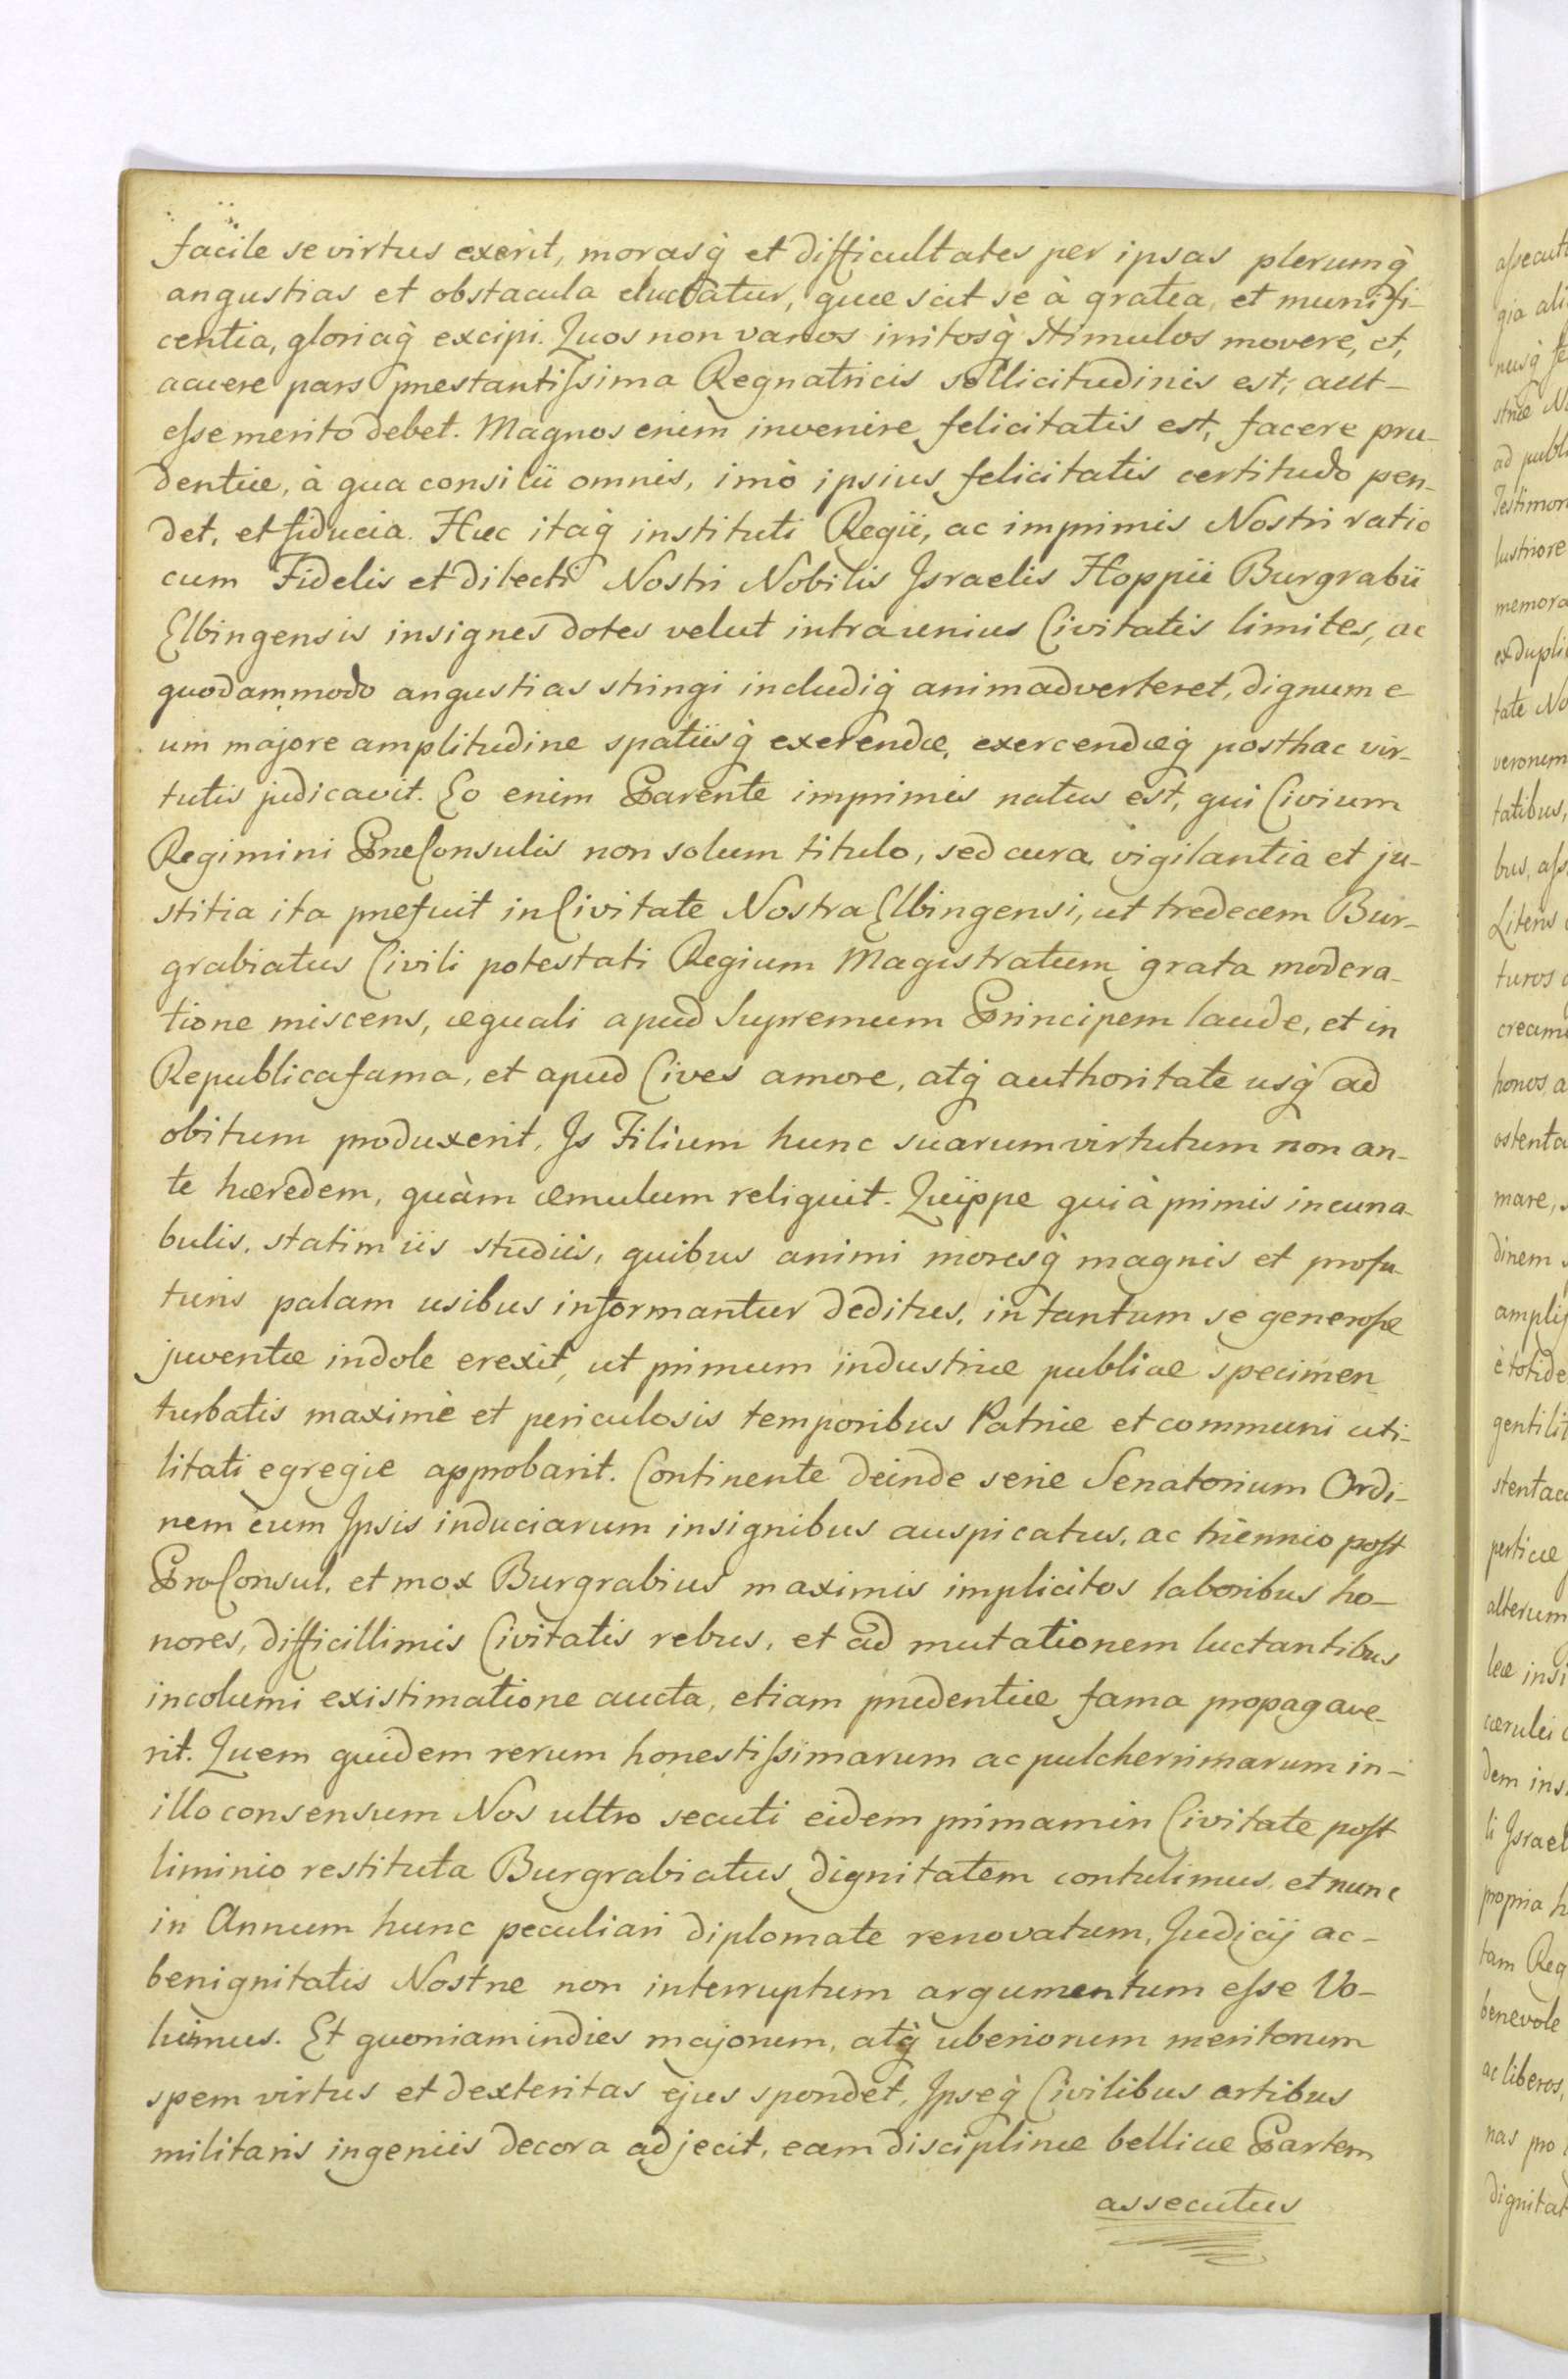 facile se virtus exerit, morasq̀ et difficultates per ipsas plerumq̀
angustias et obstacula eluctatur, quæ scit se à gratia, et munifi-
centia, gloriaq̀ excipi. Quos non vanos irritosq̀ stimulos movere, et,
acuere pars præstantissima Regnatricis sollicitudinis est, aut-
esse merito debet. Magnos enim invenire felicitatis est, facere pru-
dentiæ, à qua consilii omnis, imò ipsius felicitatis certitudo pen-
det, et fiducia. Hæc itaq̀ instituti Regii, ac imprimis Nostri ratio
cum Fidelis et dilecti Nostri Nobilis Israelis Hoppii Burgrabii
Elbingensis insignes dotes velut intra unius Civitatis limites, ac
quodammodo angustias stringi includiq̀ animadverteret, dignum e-
um majore amplitudine spatiisq̀ exerendæ, exercendæq̀ posthac vir-
tutis judicavit. Eo enim Parente imprimis natus est, qui Civium
Regimini PræConsulis non solum titulo, sed cura, vigilantia et ju-
stitia ita præfuit in Civitate Nostra Elbingensi, ut tredecem Bur-
grabiatus Civili potestati Regium Magistratum grata modera-
tione miscens, æquali apud Supremum Principem laude, et in
Republica fama, et apud Cives amore, atq̀ authoritate usq̀ ad
obitum produxerit. Is Filium hunc suarum virtutum non an-
te hæredem, quàm æmulum reliquit. Quippe qui à primis incuna-
bulis, statim iis studiis, quibus animi moresq̀ magnis et profu-
turis palam usibus informantur deditus, in tantum se generosæ
juventæ indole erexit, ut primum industriæ publicæ specimen
turbatis maximè et periculosis temporibus Patriæ et communi uti-
litati egregie approbarit. Continente deinde serie Senatorium Ordi-
nem cum Ipsis induciarum insignibus auspicatus, ac triennio post
ProConsul, et mox Burgrabius maximis implicitos laboribus ho-
nores, difficillimis Civitatis rebus, et ad mutationem luctantibus
incolumi existimatione aucta, etiam prudentiæ fama propagave-
rit. Quem quidem rerum honestissimarum ac pulcherrimarum in-
illo consensum Nos ultro secuti eidem primam in Civitate post
liminio restituta Burgrabiatus dignitatem contulimus, et nunc
in Annum hunc peculiari diplomate renovatum, Judicij ac-
benignitatis Nostræ non interruptum argumentum esse Vo-
luimus. Et quoniam indies majorum, atq̀ uberiorum meritorum
spem virtus et dexteritas ejus spondet, Ipseq̀ Civilibus artibus
militaris ingeniis decora adjecit, eam disciplinæ bellicæ Partem
assecutus